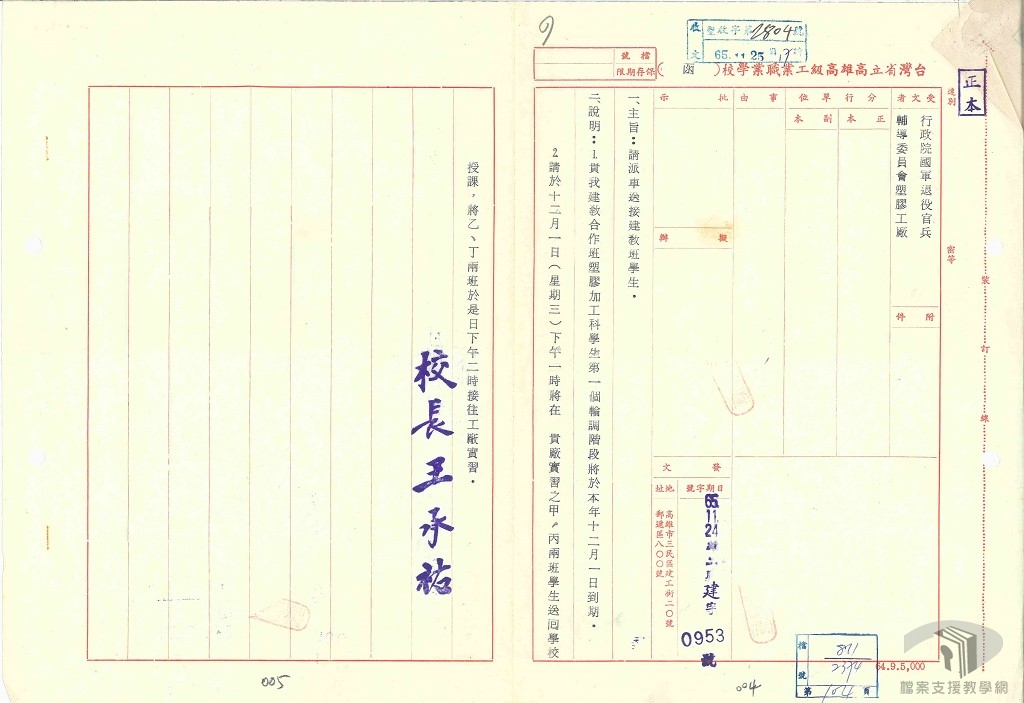 正本
速別
密等
裝訂線
台灣省立高雄高級工業職業學校(函)
檔號
保存期限
收文
塑收字第2804號
65.11.25
受文者
行政院國軍退役官兵
輔導委員會塑膠工廠
附件
分行單位
正本
副本
事由
批示
擬辦
發文
日期字號
65.11.24
建字
0953
號
地址
高雄市三民區建工街二〇號
郵遞區八〇〇號
一、主旨：請派車送接建教班學生。
二、說明：1.貴我建教合作班塑膠加工科學生第一個輪調階段將於本年十二月一日到期。
2.請於十二月一日(星期三)下午一時將在 貴廠實習之甲、丙兩班學生送回學校
授課，將乙、丁兩班於是日下午二時接往工廠實習。
校長王承祐
檔號
871
2394
第104頁
64.9.5,000
004
005
檔案支援教學網